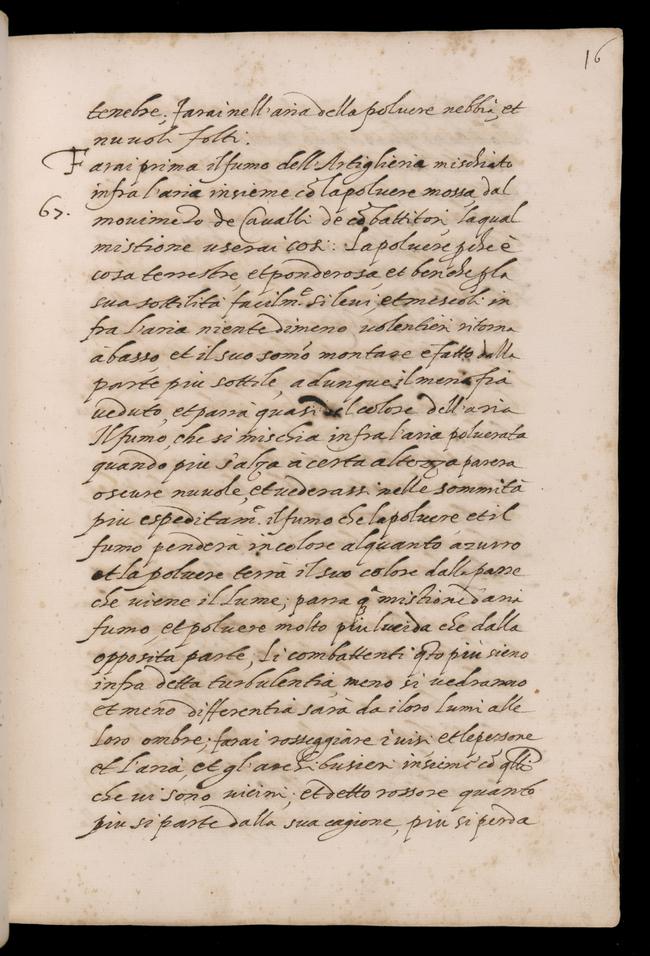 16
tenebre; farai nell'aria della poluere nebbia, et
nuuoli folti.
Farai prima il fumo dell'Artiglieria mischiato
67.
infra l'aria insieme cō la poluere mossa dal
mouimēto de Caualli de cōbattitori laqual
mistione userai cosi: La poluere pche è
cosa terrestre, et ponderosa, et benche p la
sua sottilità facilmᵉ. si leui, et mescoli in
fra l'aria niente dimeno uolentieri ritorna
à basso, et il suo somō montare è fatto dalla
parte piu sottile, adunque il meno fia
ueduto, et parrà quasi del colore dell'aria
Il fumo, che si mischia infra l'aria poluerata
quando piu s'alza à certa altezza parera
oscure nuuole, et uederassi nelle sommità
piu espeditamᵉ. il fumo che la poluere et il
fumo penderà in colore alquanto azurro
et la poluere terrà il suo colore dalla parte
che uiene il lume; parra qᵃ mistione d'aria
fumo et poluere molto piu lucida che dalla
opposita parte, Li combattenti qto piu sieno
infra detta turbulentia, meno si uedranno
et meno differentia sarà da i loro lumi alle
loro ombre; farai rosseggiare i uisi et le persone
et l'aria, et gl'archibusieri insieme cō qlli
che ui sono uicini; et detto rossore quanto
piu si parte dalla sua cagione, piu si perda